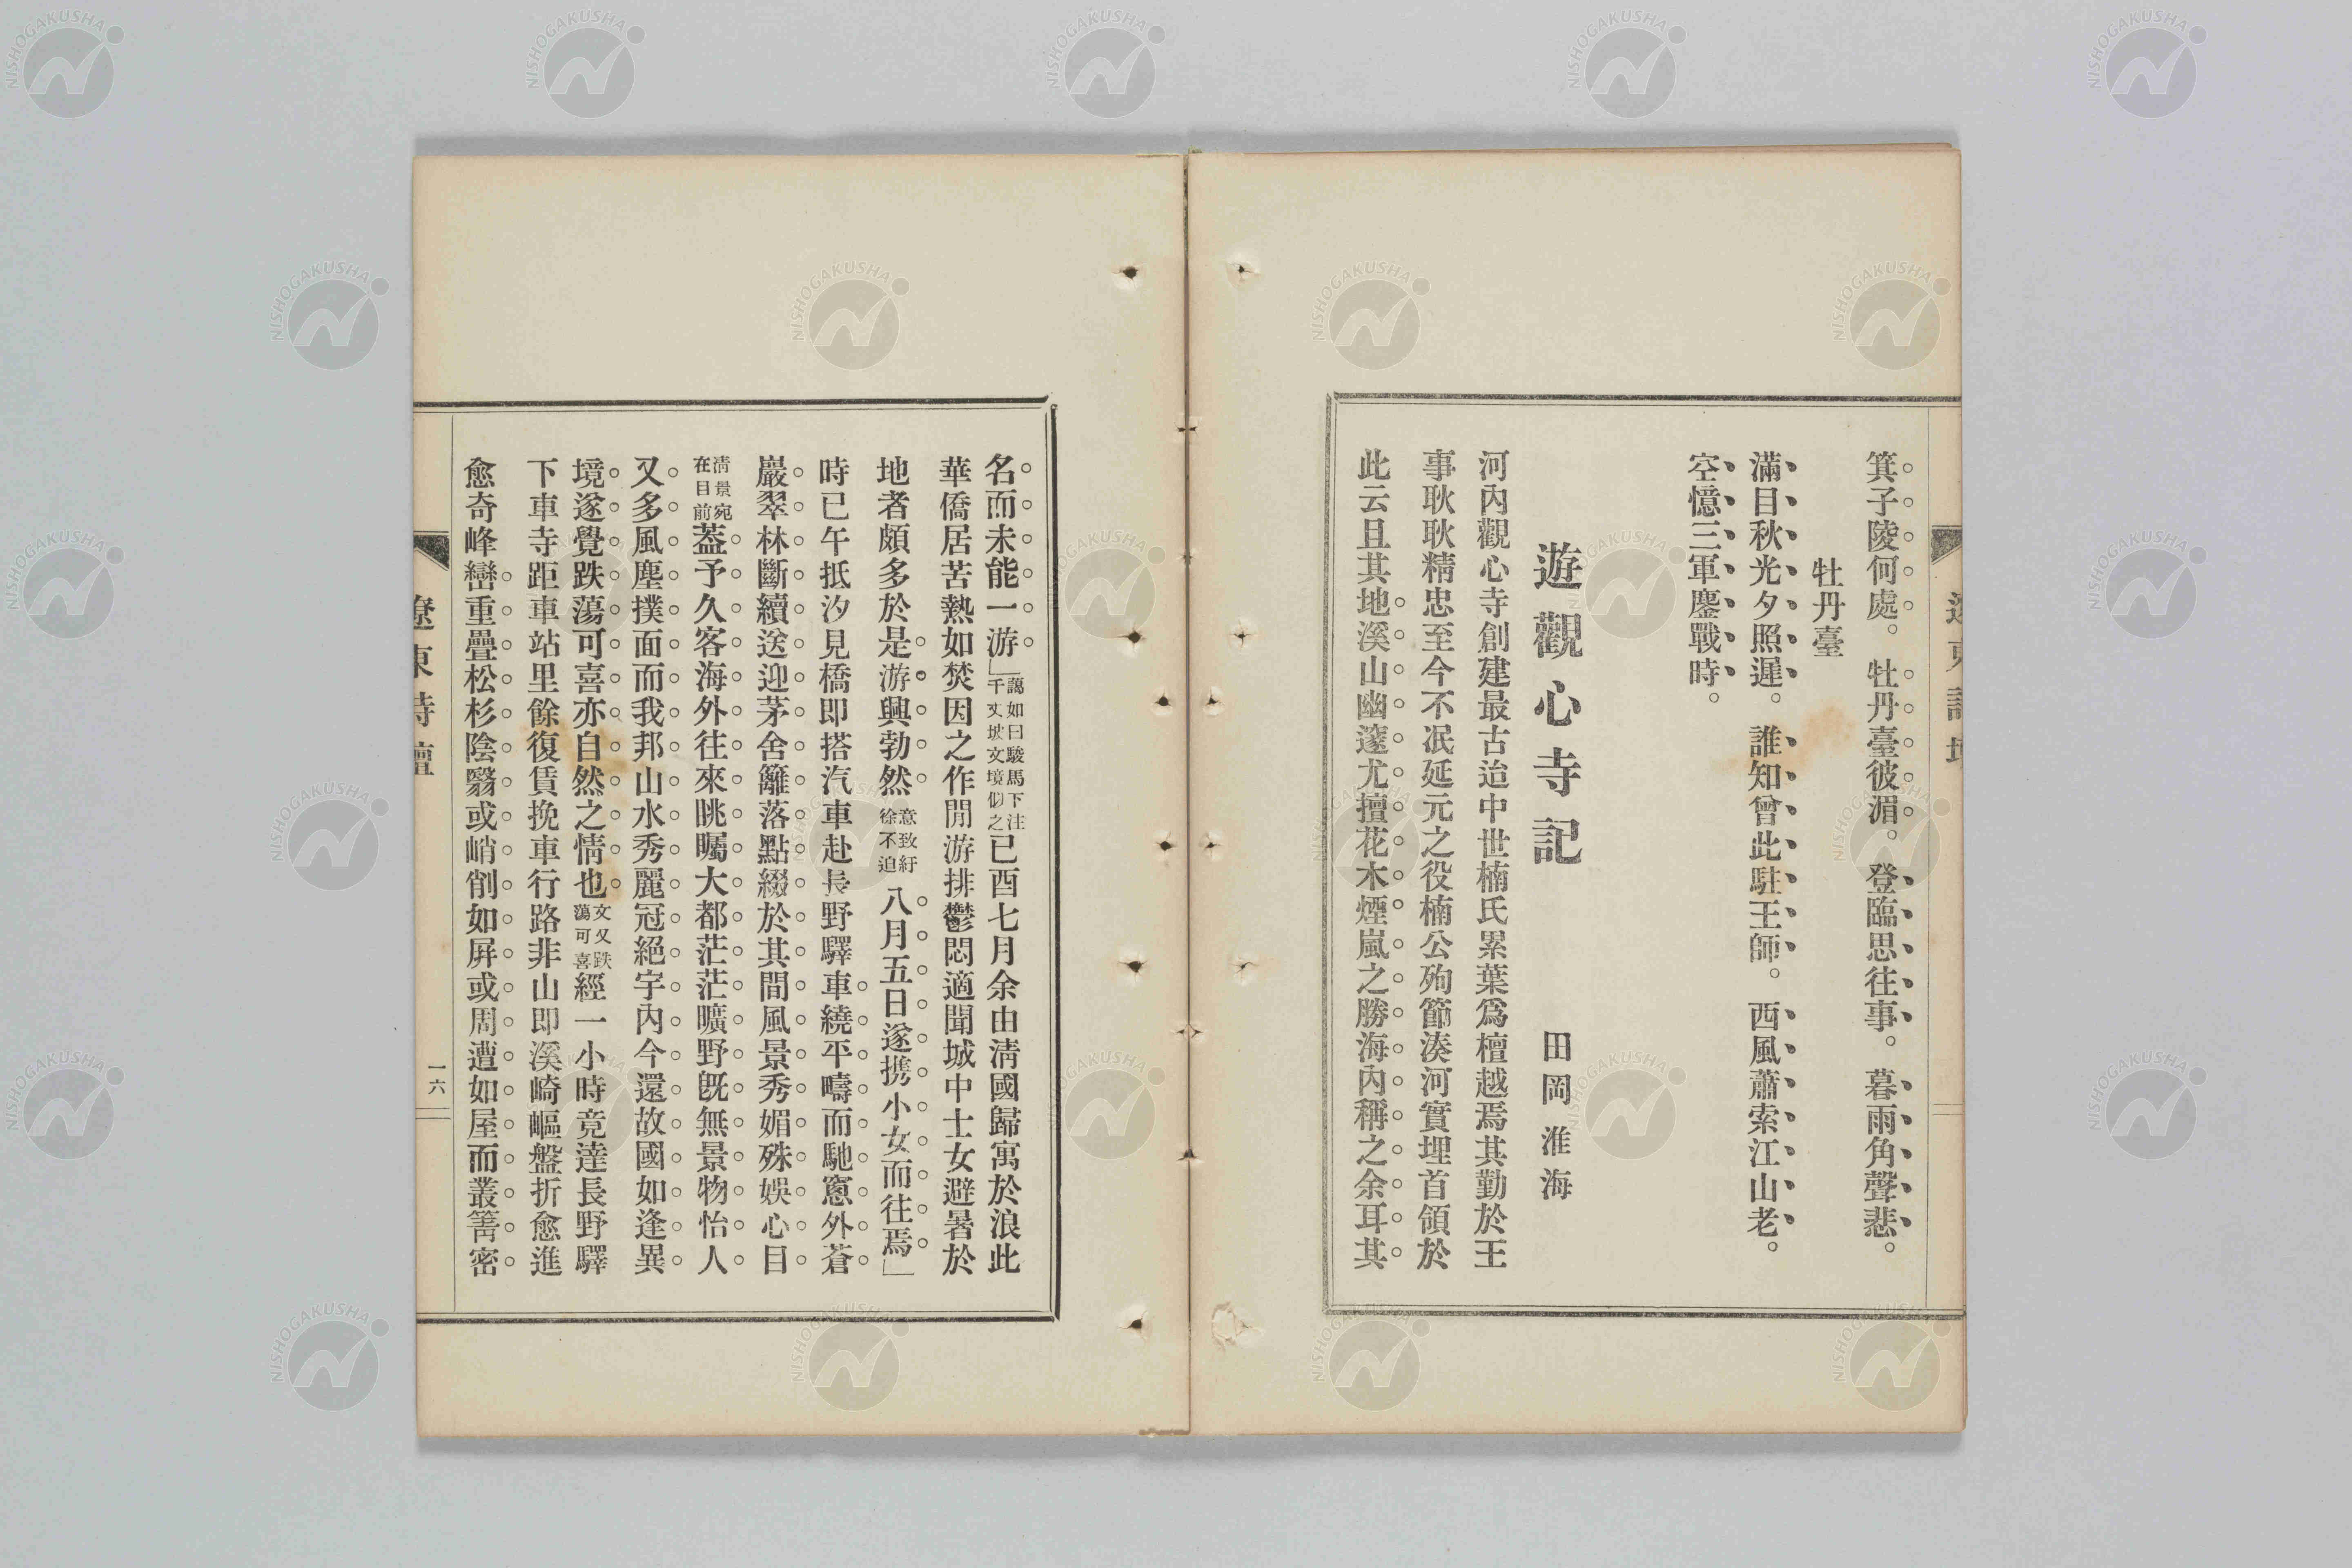 遼東詩壇
箕子陵何處。牡丹臺彼湄。登臨思往事。暮雨角聲悲。
牡丹臺
滿目秋光夕照遲。誰知曾此駐王師。西風蕭索江山老。
空憶三軍鏖戰時。
遊觀心寺記 田岡淮海
河內觀心寺創建最古迨中世楠氏累葉爲檀越焉其勤於王
事耿耿精忠至今不泯延元之役楠公殉節湊河實埋首領於
此云且其地溪山幽邃尤擅花木煙嵐之勝海內稱之余耳其
名而未能一游」謌如曰駿馬下注千丈坡文境似之已酉七月余由淸國歸寓於浪此
華僑居苦熱如焚因之作閒游排鬱悶適聞城中士女避暑於
地者頗多於是游興勃然意致紆徐不迫八月五日遂携小女而往焉」
時已午抵汐見橋即搭汽車赴長野驛車繞平疇而馳窻外蒼
巖翠林斷續送迎茅舍籬落點綴於其間風景秀媚殊娛心目
淸景宛在目前蓋予久客海外往來眺矚大都茫茫曠野旣無景物怡人
又多風塵撲面而我邦山水秀麗冠絕宇內今還故國如逢異
境遂覺跌蕩可喜亦自然之情也文又跌蕩可喜經一小時竟達長野驛
下車寺距車站里餘復賃挽車行路非山即溪崎嶇盤折愈進
愈奇峰巒重疊松杉陰翳或峭削如屛或周遭如屋而叢箐密
遼東詩壇
一六
NISHOGAKUSHA